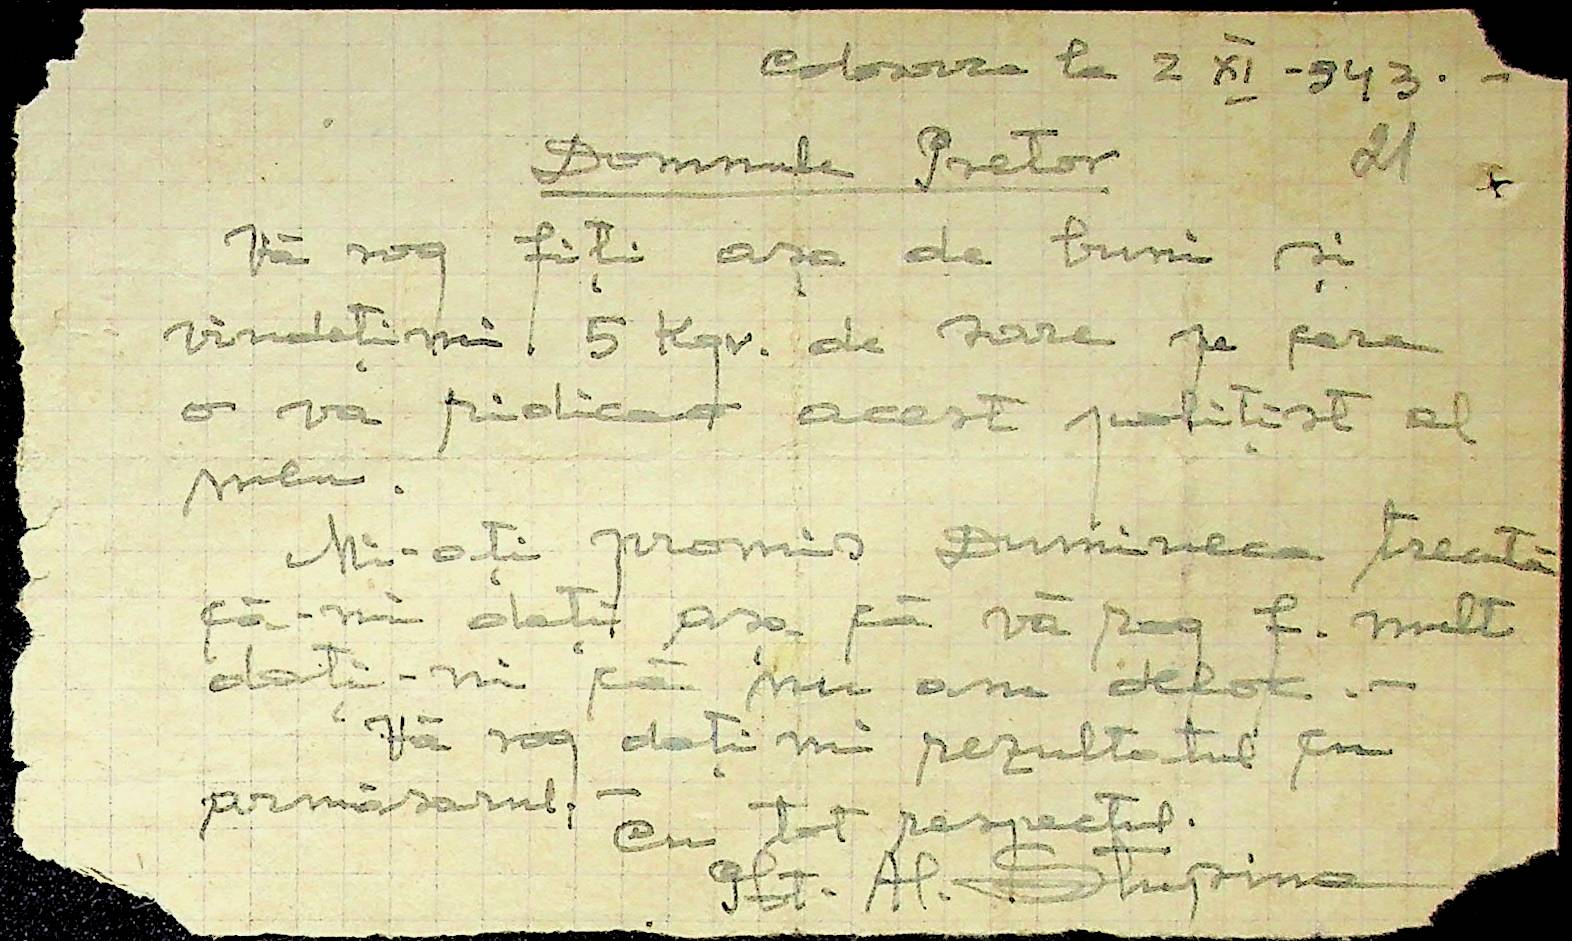 Colosova la 2 XI -943. -
Domnule Pretor 21
Vă rog fiți așa de buni și
vindețimi 5 Kgr. de sare pe care
o va ridicao acest polițist al
meu.
Mi-ați promis Dumineca trecută
că-mi dați așa că vă rog f. mult
dați-mi că nu am deloc. -
Vă rog dați mi rezultatul cu
armăsarul. -
Cu tot respectul.
Plt. Al.